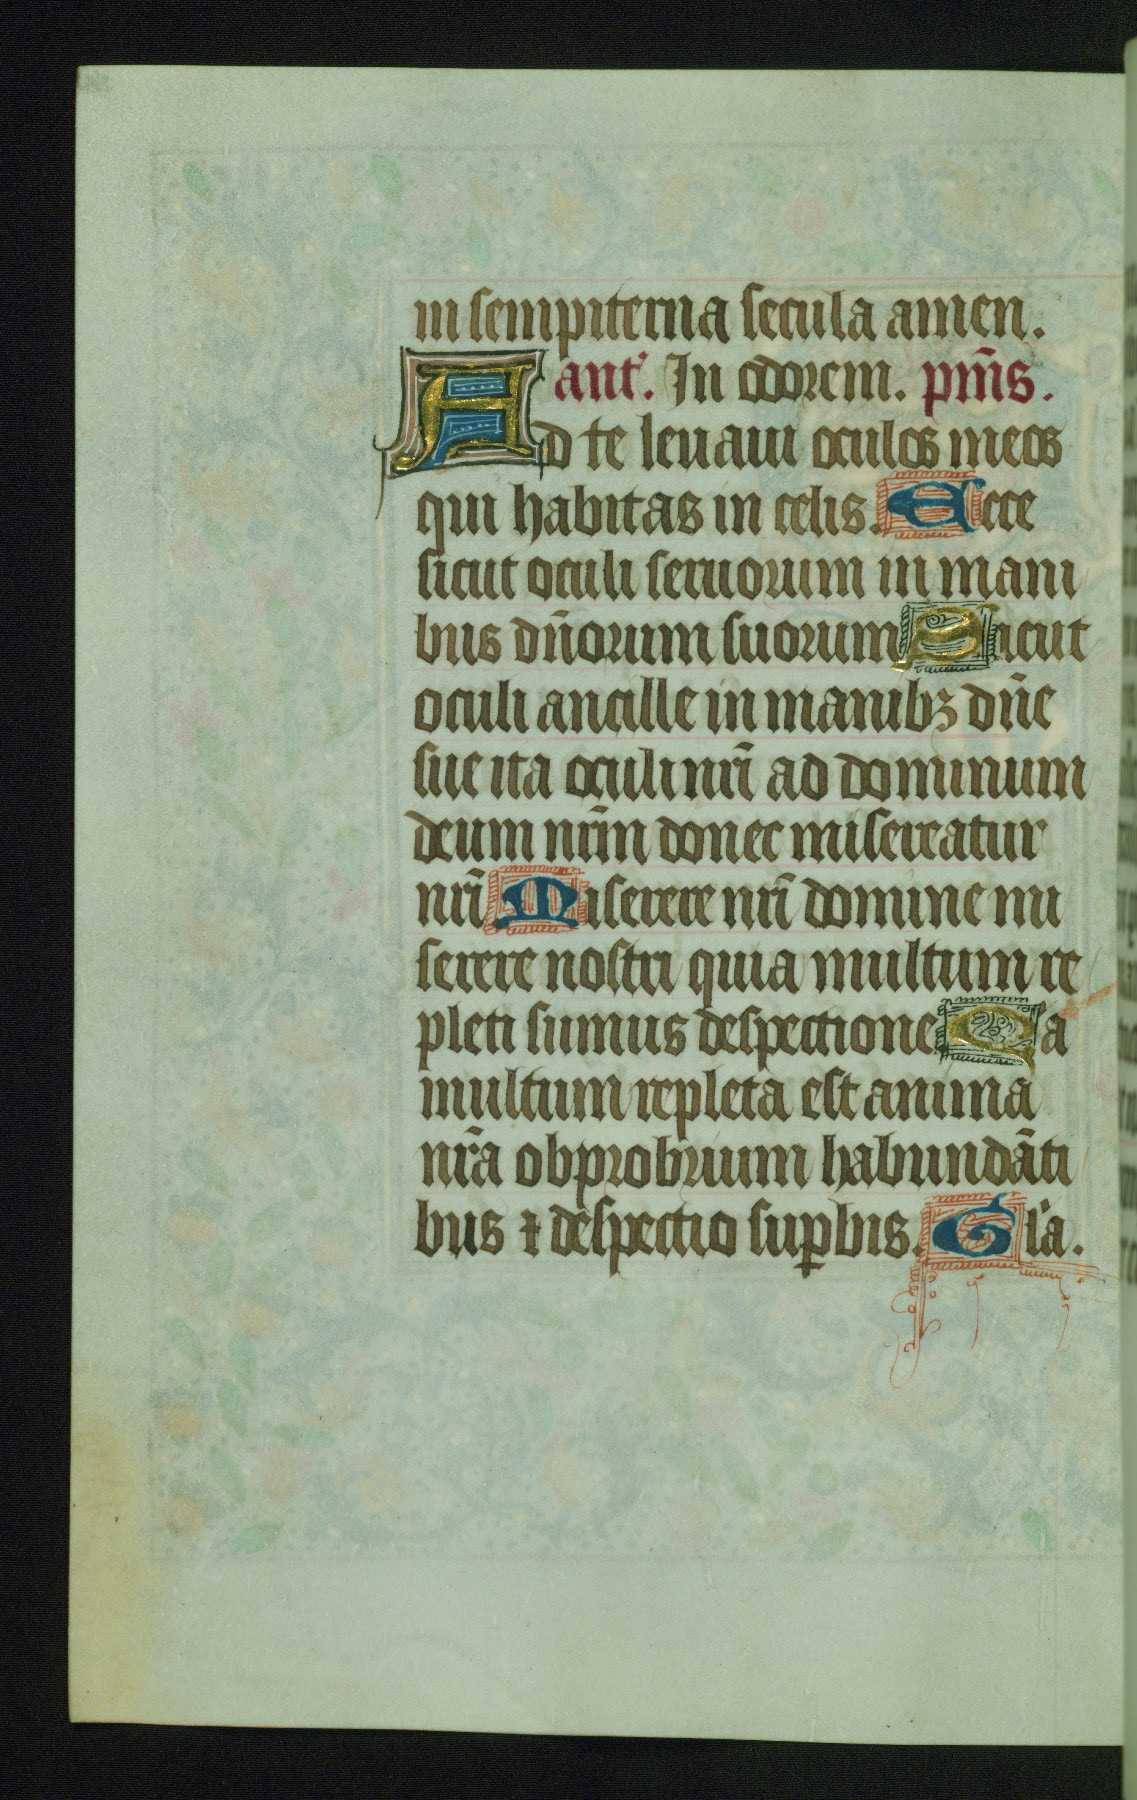 in sempiterna secula amen.
ant̉. In odorem. pm̄s.
Ad te leuaui oculos meos
qui habitas in celis. Ecce
sicut oculi seruorum in mani
bus dn̄orum suorum Sicut
oculi ancille in manibꝫ dn̄e
sue ita oculi nr̄i ad dominum
deum nr̄m donec misereatur
nr̄i Miserere nr̄i domine mi
serere nostri quia multum re
pleti sumus despectione Qa
multum repleta est anima
nr̄a obprobrium habundāti
bus ⁊ despectio suꝑbis. Gl̉a.